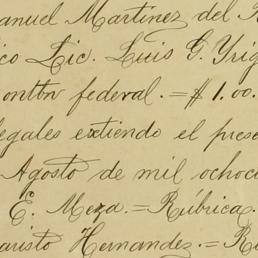 anuel Martinez del R
ico Lic. Luis G. Yrig
onton federal. = $1.00.
legales extiendo el prese
Agosto de mil ochoci
E. Meza. = Rúbrica.
aristo Hernandez. = Rú